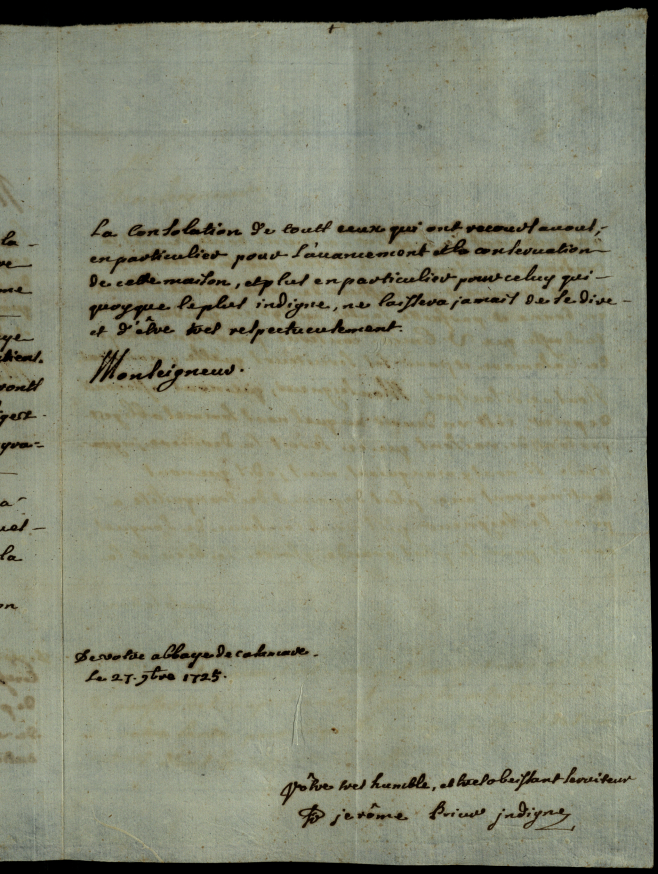 la-
re
me
ye
tient.
ront
gest.
gra-
a
uel-
la
on
La Consolation de touts ceux qui ont recours a vous,
en particulier pour l'avancement et la conservation
de cette maison, et plus en particulier pour celuy qui-
quoyque le plus indigne, ne laissera jamais de se dire-
et d'être tres respectueusement.
Monseigneur.
De votre abbaye de
Le 27. 9bre 1725.
Vôtre tres humble, et tres obeissant serviteur
D jerôme Prieur jndigne